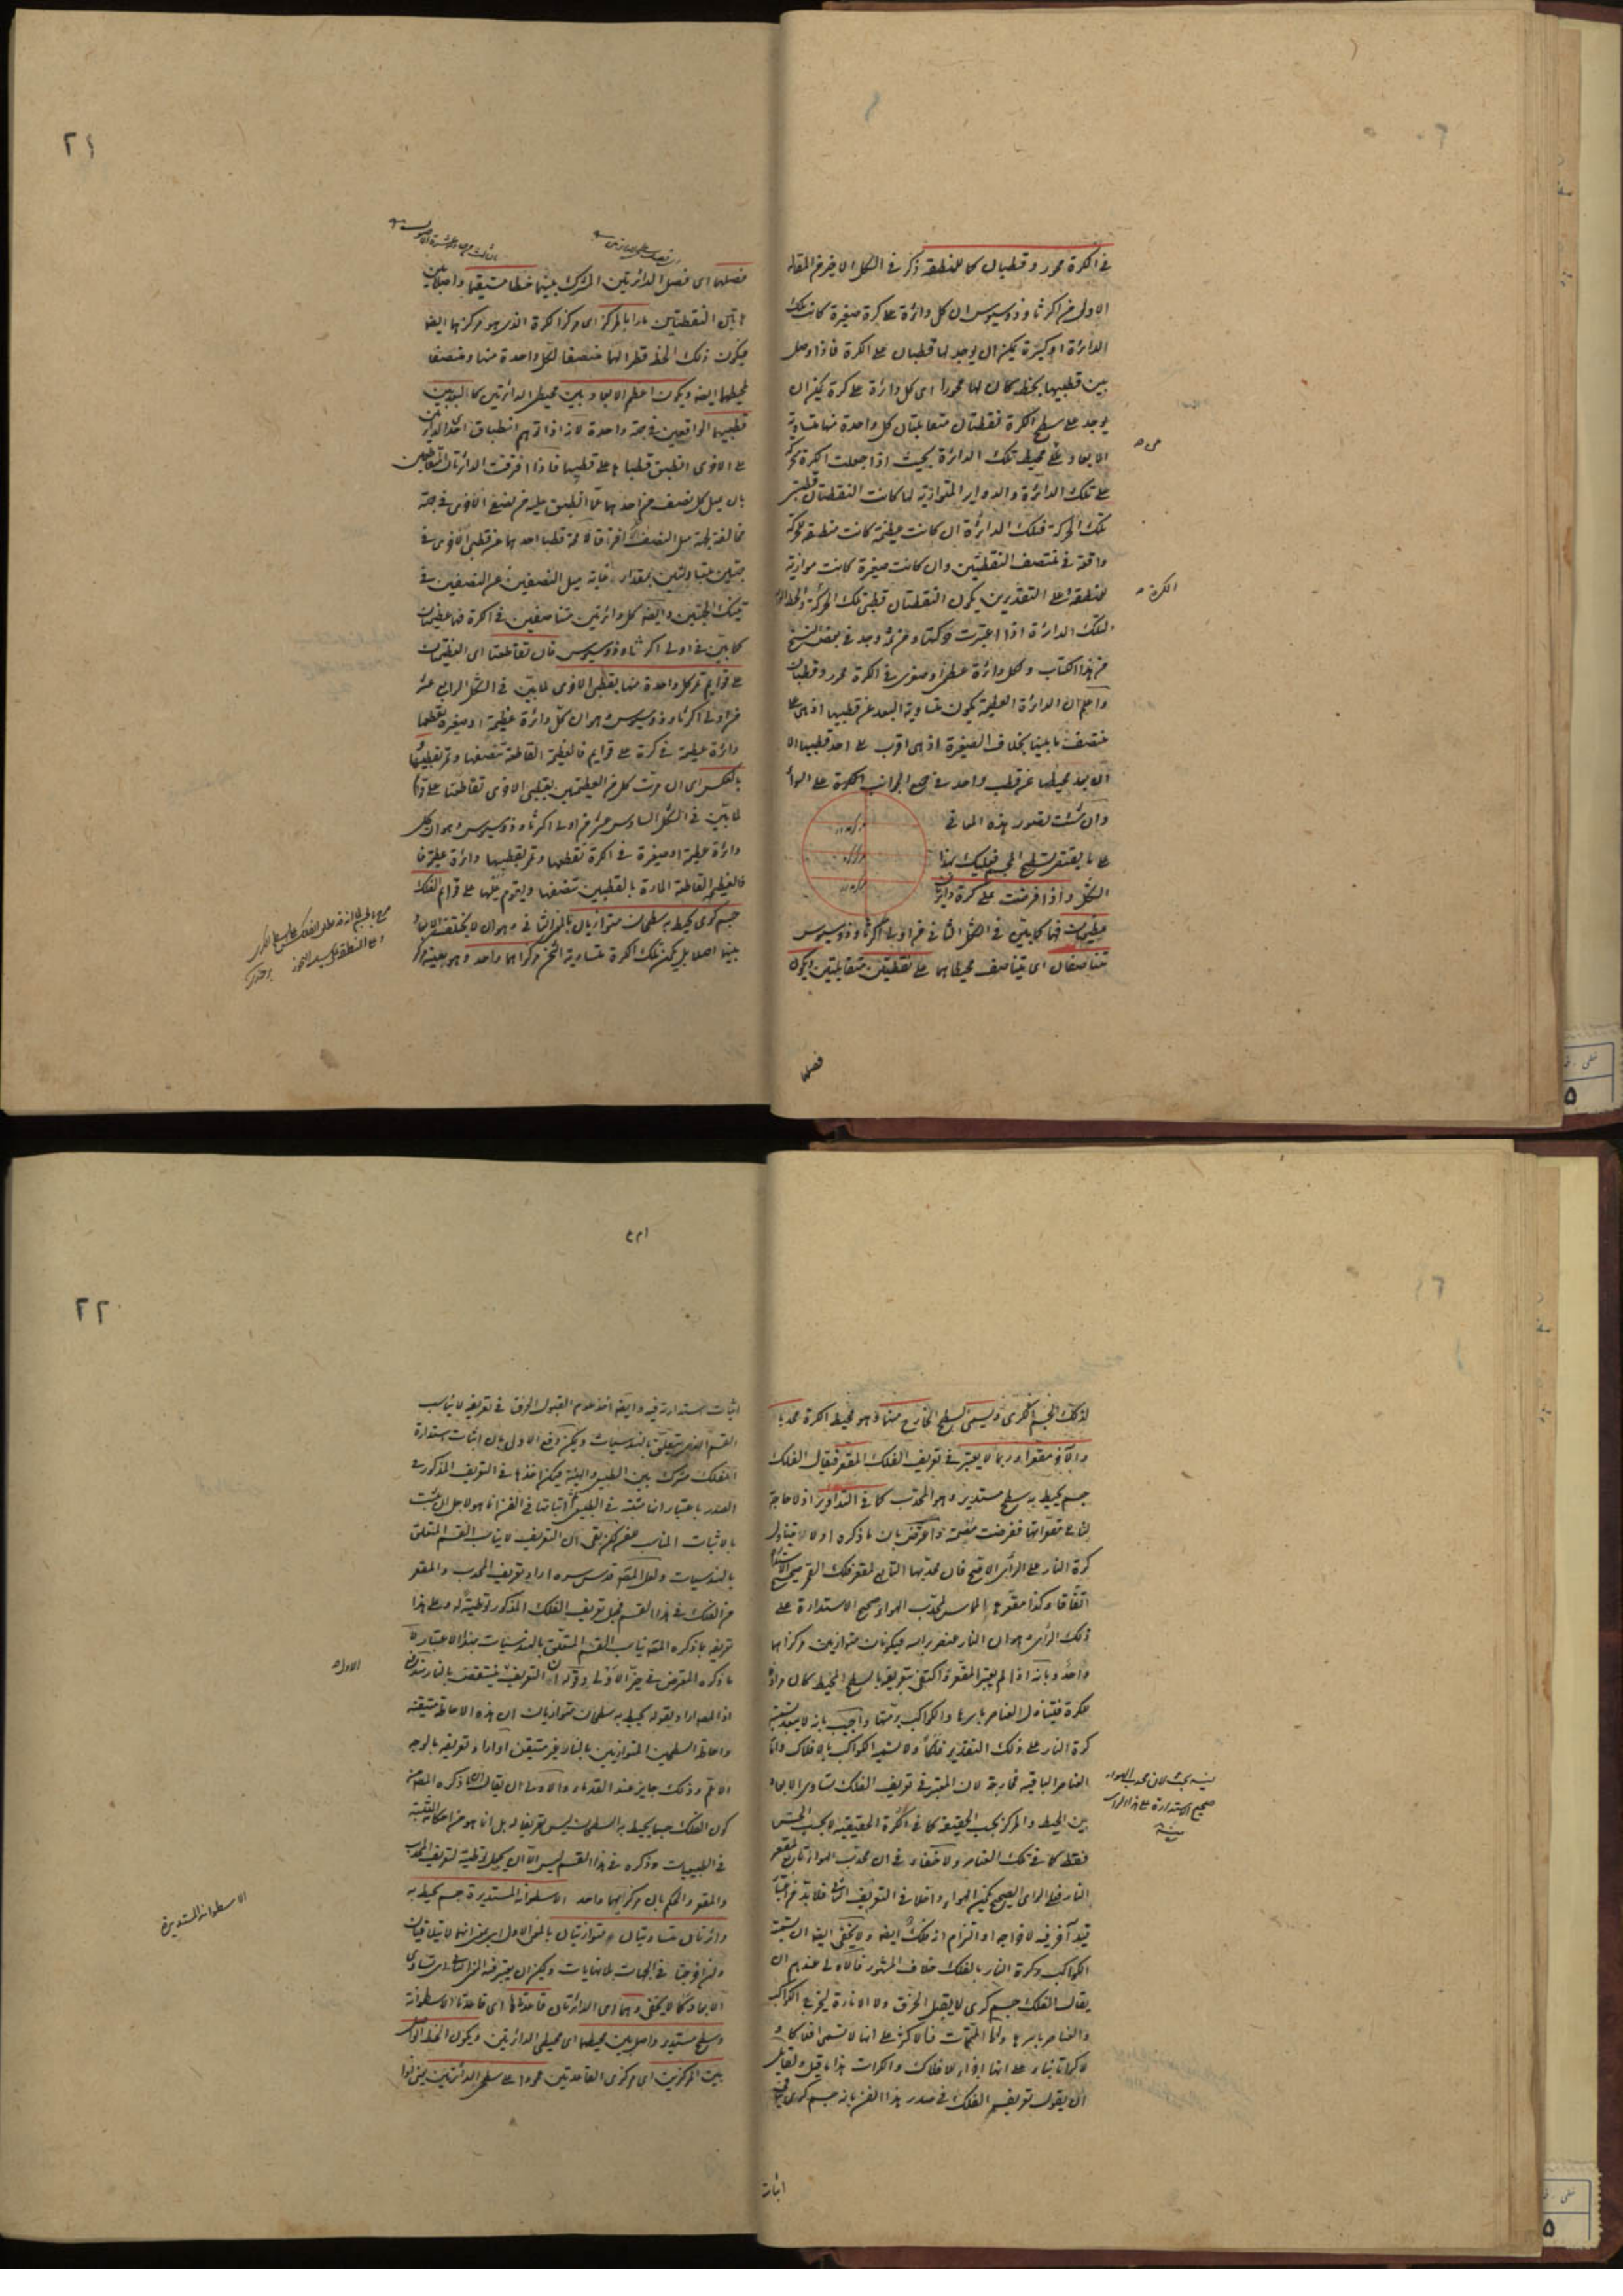 في الكرة محور وقطبان كما للمنطقة ذكر في الشكل الاخير من المقالة
الاولى من اكر ثاوذوسيوس ان كل دائرة على كرة صغيرة كانت تلك
الدائرة او كبيرة يمكن ان يوجد لها قطبان على الكرة فاذا وصل
بين قطبيها بخط كان لها محورا اى كل دائرة على كرة يمكن ان
يوجد على سطح الكرة نقطتان متقابلتان كل واحدة منها متساوية
الابعاد على محيط تلك الدائرة بحيث اذا جعلت الكرة متحركة
على تلك الدائرة والدواير المتوازية لها كانت النقطتان قطبى
تلك الحركة فتلك الدائرة ان كانت عظيمة كانت منطقة للحركة
واقعة في منتصف النقطتين وان كانت صغيرة كانت موازية
للمنطقة وعلى التقديرين يكون النقطتان قطبى تلك الحركة والخط
لتلك الدائرة اذا اعتبرت وجد في بعض النسخ
من هذا الكتاب ولكل دائرة عظمى او صغرى في الكرة محور وقطبان
واعلم ان الدائرة العظيمة يكون متساوية البعد عن قطبيها اذ هى على
منتصف ما بينها بخلاف الصغيرة اذ هى اقرب على احد قطبيها الا
ان بعد محيطها عن قطب واحد من جميع الجوانب
وان شئت تصور هذه المعانى
على ما يقتضى تسطيح المجسم فعليك بهذا
الشكل واذا فرضت على كرة دايرتان
عظيمتان فهما كما بين في الشكل الثانى من اولى اكر ثاوذوسيوس
تتناصفان اى يتناصف محيطاهما على نقطتين متقابلتين ويكون
فصلها
٢١
فصلها اى فصل الدائرتين المشترك بينهما خطا مستقيما واصلا بين
هاتين النقطتين مارا بالمركز اى مركز الكرة الذى هو مركزها ايضا
فيكون ذلك الخط قطرا لهما منصفا لكل واحدة منها ومنصفا
لمحيطها ايضا ويكون اعظم الابعاد بين محيطى الدائرتين كما البعد بين
قطبيهما الواقعين في جهة واحدة لانه اذا توهم انطباق احدى الدائرتين
على الاخرى انطبق قطباها على قطبيها فاذا افترقت الدائرتان
بان ميل كل نصف من احدهما عما انطبق عليه من نصفى الاخرى في جهة
مخالفة لجهة ميل النصف افترق لا محة قطبا احدهما عن قطبى الاخرى في
جهتين متبادلتين بمقدار غاية ميل النصفين عن النصفين في
تينك الجهتين وايضا كل دائرتين متناصفتين في الكرة فهما عظيمتان
كما بين في اولى اكر ثاوذوسيوس فان تقاطعتا اى العظيمتان
على قوايم تمر كل واحدة منها بقطبى الاخرى لما بين في الشكل الرابع عشر
من اولى اكر ثاوذوسيوس وهو ان كل دائرة عظيمة او صغيرة يقطعها
دائرة عظيمة في كرة على قوايم فالعظيمة القاطعة تنصفها وتمر بقطبيها
بالعكس اى ان مرت كل من العظيمتين بقطبى الاخرى تقاطعتا على
لما بين في الشكل السادس عشر من اولى اكر ثاوذوسيوس وهو ان كل
دائرة عظيمة او صغيرة في الكرة تقطعها وتمر بقطبيها دائرة عظيمة
فالعظيمة القاطعة المارة بالقطبين تنصفها ويقوم عليها على قوايم الفلك
جسم كرى يحيط به سطحان متوازيان بالمعنى الثانى وهو ان لا يختلف الابعاد
بينهما اصلا بل يكون تلك الكرة متساوية الثخن مركزاهما واحد وهو بعينه مركز
٢٢
لذلك الجسم الكرى ويسمى السطح الخارج منهما وهو محيط الكرة محدبا
والاخر مقعرا وربما لا يعتبر في تعريف الفلك المقعر فيقال الفلك
جسم يحيط به سطح مستدير وهو المحدب كما في التداوير اذ لا حاجة
لنا الى مقعراتها ففرضت مصمتة واعترض بان ما ذكره اولا لا يتناول
كرة النار على الراى الاصح فان محدبها التابع لمقعر فلك القمر صحيح
اتفاقا وكذا مقعرها المماس لمحدب الهواء صحيح الاستدارة على
ذلك الراى وهو ان النار عنصر براسه فيكونان متوازيين مركزاهما
واحد وبانه اذا لم يعتبر المقعر واكتفى بتعريفه بالسطح المحيط كان مرادفا
للكرة فيتناول العناصر باسرها والكواكب برمتها واجيب بانه لا يبعد تسمية
كرة النار على ذلك التقدير فلكا ولا تسمية الكواكب بالافلاك واما
العناصر الباقية فخارجة لان المعتبر في تعريف الفلك تساوى الابعاد
بين المحيط والمركز بحسب الحقيقة كما في الكرة الحقيقية لا بحسب الحس
فقط كما في تلك العناصر ولا خفاء في ان محدب الهواء تابع لمقعر
النار فعلى الراى الصحيح يكون الهواء داخلا في التعريف الثانى فلابد من
قيد آخر فيه لاخراجه او التزام انه فلك ايضا ولا يخفى ايضا ان تسمية
الكواكب وكرة النار بالفلك خلاف المشهور فالاولى عندهم ان
يقال الفلك جسم كرى لا يقبل الخرق ولا الانارة ليخرج الكواكب
والعناصر باسرها واما المتممات فالاكثر على انها لا تسمى افلاكا
لا كراتا بناء على انها اجزاء للافلاك والكرات هذا ما قيل ولقائل
ان يقول تعريف الفلك في صدر هذا الفن بانه جسم كرى
اثبات
اثبات الاستدارة فيه وايضا اخذ عدم القبول للخرق في تعريفه لا يناسب
القسم الذى يتعلق بالهندسيات ويمكن دفع الاول بان اثبات استدارة
الفلك مشترك بين الطبيعى والهيئة فيمكن اخذها في التعريف المذكور في
الصدر باعتبار انها مثبتة في الطبيعى واثباتها في الفن انما هو لاجل ان تثبت
بالاثبات المناسب للفن لكن بقى ان التعريف لا يناسب القسم المتعلق
بالهندسيات ولعل المصنف قدس سره اراد تعريف المحدب والمقعر
من الفلك في هذا القسم فجعل تعريف الفلك المذكور توطية له وعلى هذا
تعريفه بما ذكره المصنف يناسب القسم المتعلق بالهندسيات بهذا الاعتبار لا
ما ذكره المعترض في حيز الاولى وقوله ان التعريف منتقض بالنار
اذ المصنف اراد بقوله يحيط به سطحان متوازيان ان هذه الاحاطة متيقنة
واحاطة السطحين المتوازيين بالنار غير متيقن او اراد تعريفه بالوجه
الاعم وذلك جايز عند القدماء والاولى ان يقال ان ما ذكره المصنف من
كون الفلك جسما يحيط به السطحان ليس تعريفا له بل انما هو من احكامه المثبتة
في الطبيعيات وذكره في هذا القسم ليس الا ان يكون توطية لتعريف المحدب
والمقعر والحكم بان مركزيهما واحد الاسطوانة المستديرة جسم يحيط به
دائرتان متساويتان متوازيتان بالمعنى الاول اى بمعنى انهما لا يتلاقيان
ولو اخرجتا في الجهات بلا نهايات ويمكن ان يعتبر فيه المعنى الثانى اى تساوى
الابعاد كما لا يخفى وهما اى الدائرتان قاعدتاها اى قاعدتا الاسطوانة
وسطح مستدير واصل بين محيطهما اى محيطى الدائرتين ويكون الخط الواصل
بين المركزين اى مركزى القاعدتين عمودا على سطحى الدائرتين
الاول
الاسطوانة المستديرة